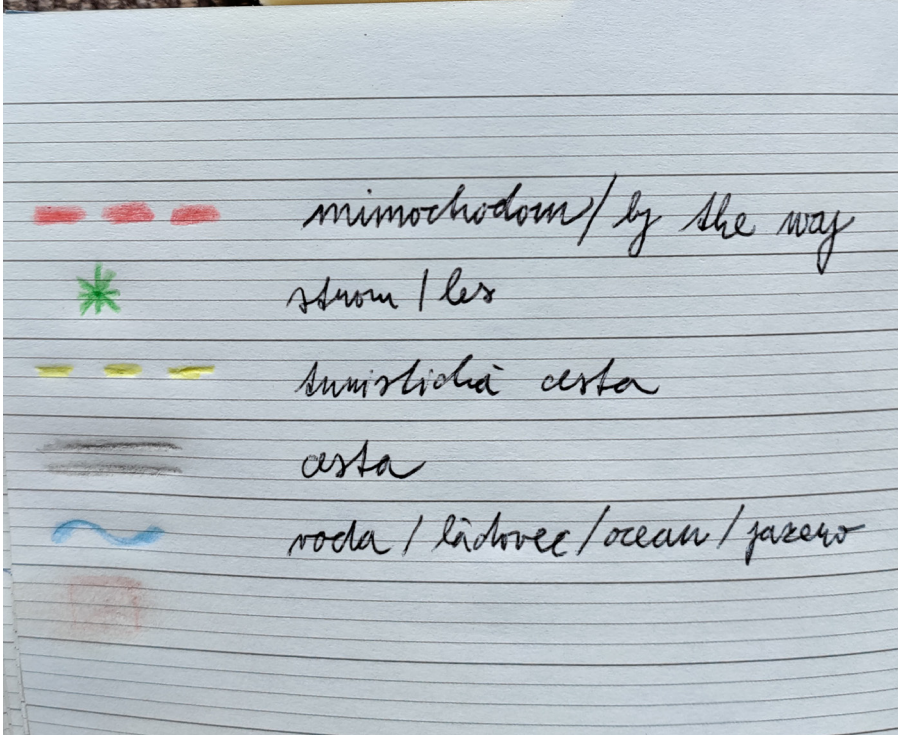 mimochodom / by the way
strom / les
turistická cesta
cesta
voda / ľadovec / ocean / jazero